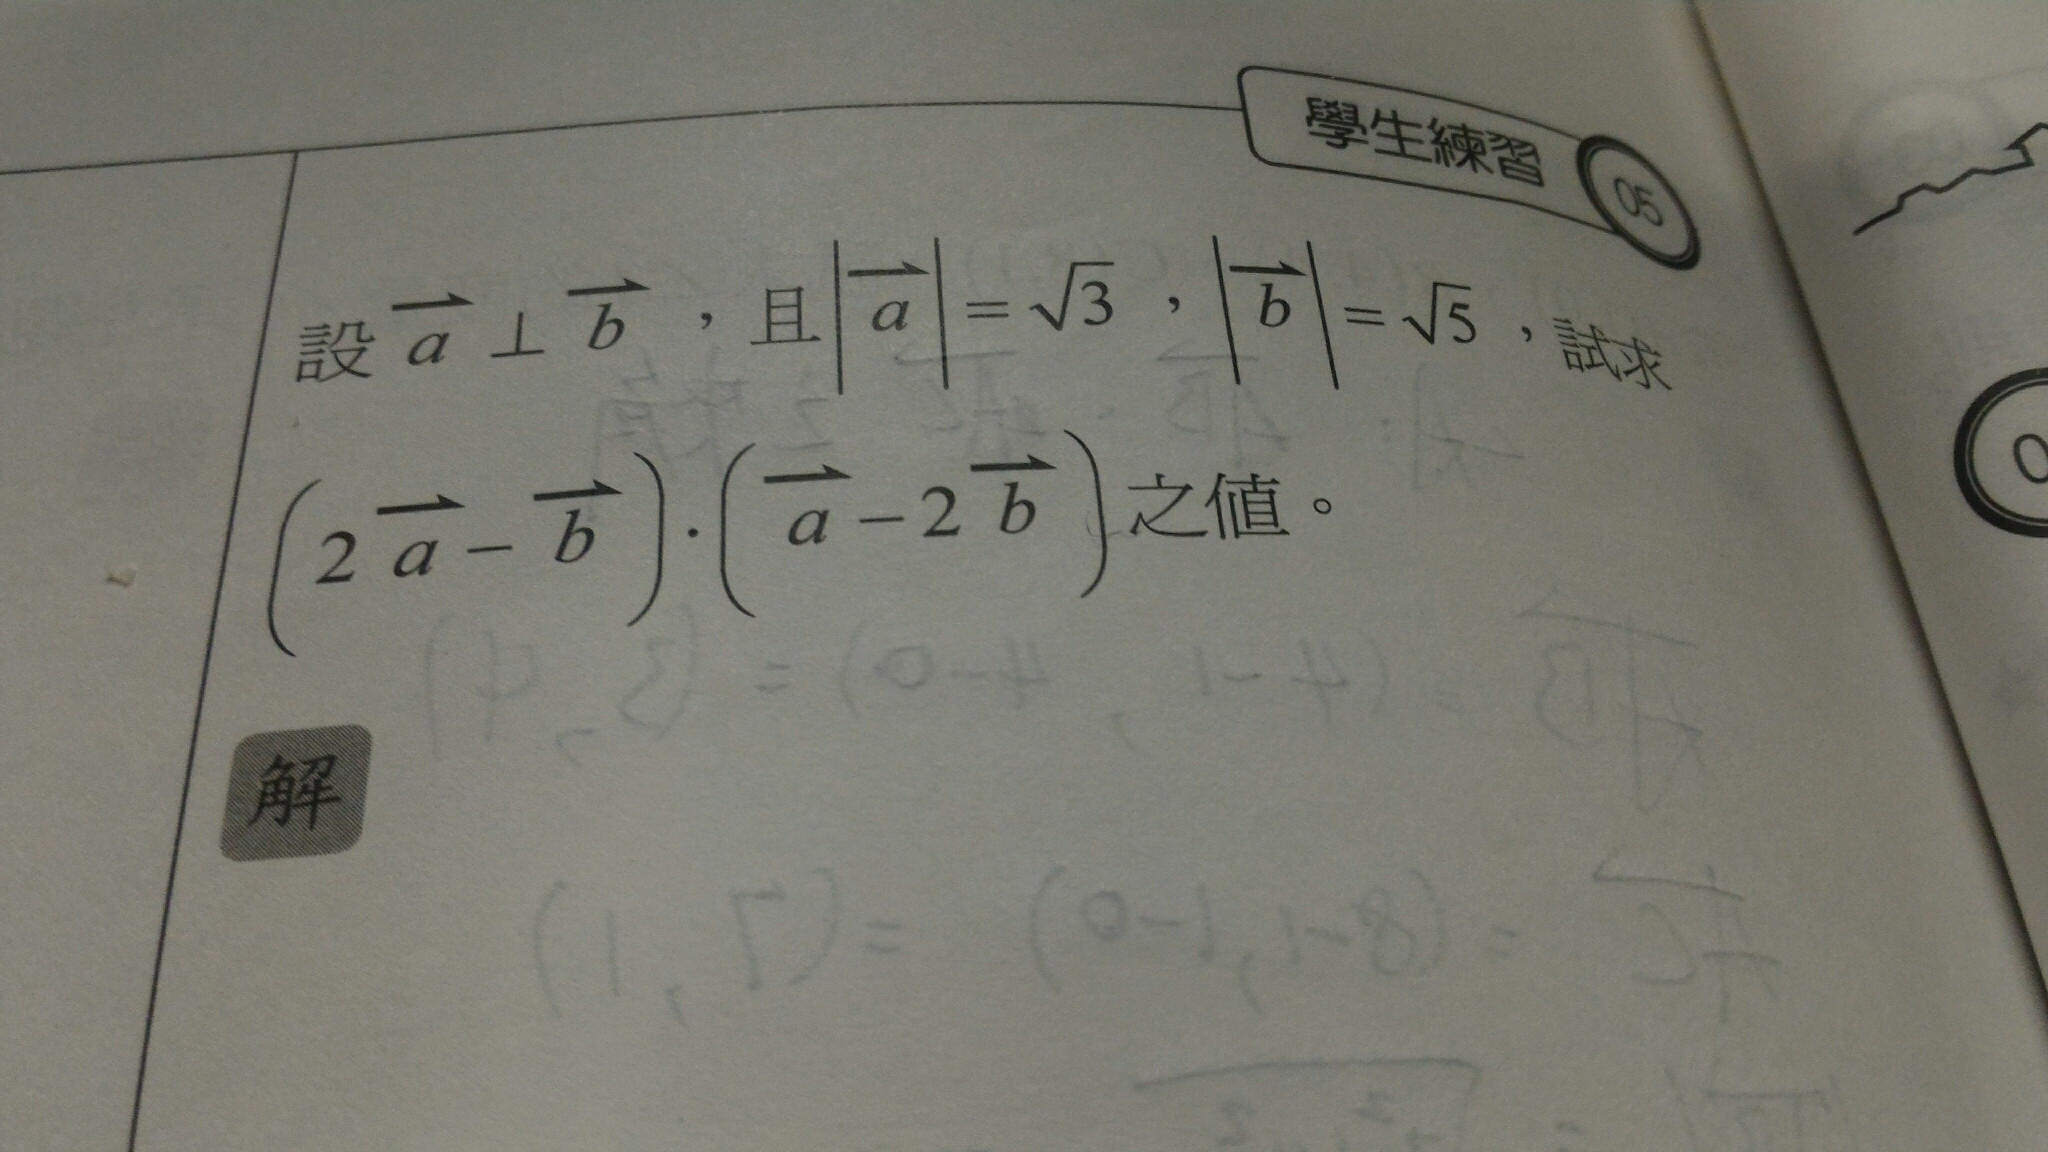 學生練習 05
設 a⃑ ⊥ b⃑ ，且 |a⃑| = √3 ，|b⃑| = √5 ，試求
(2a⃑ − b⃑)·(a⃑ − 2b⃑) 之值。
解